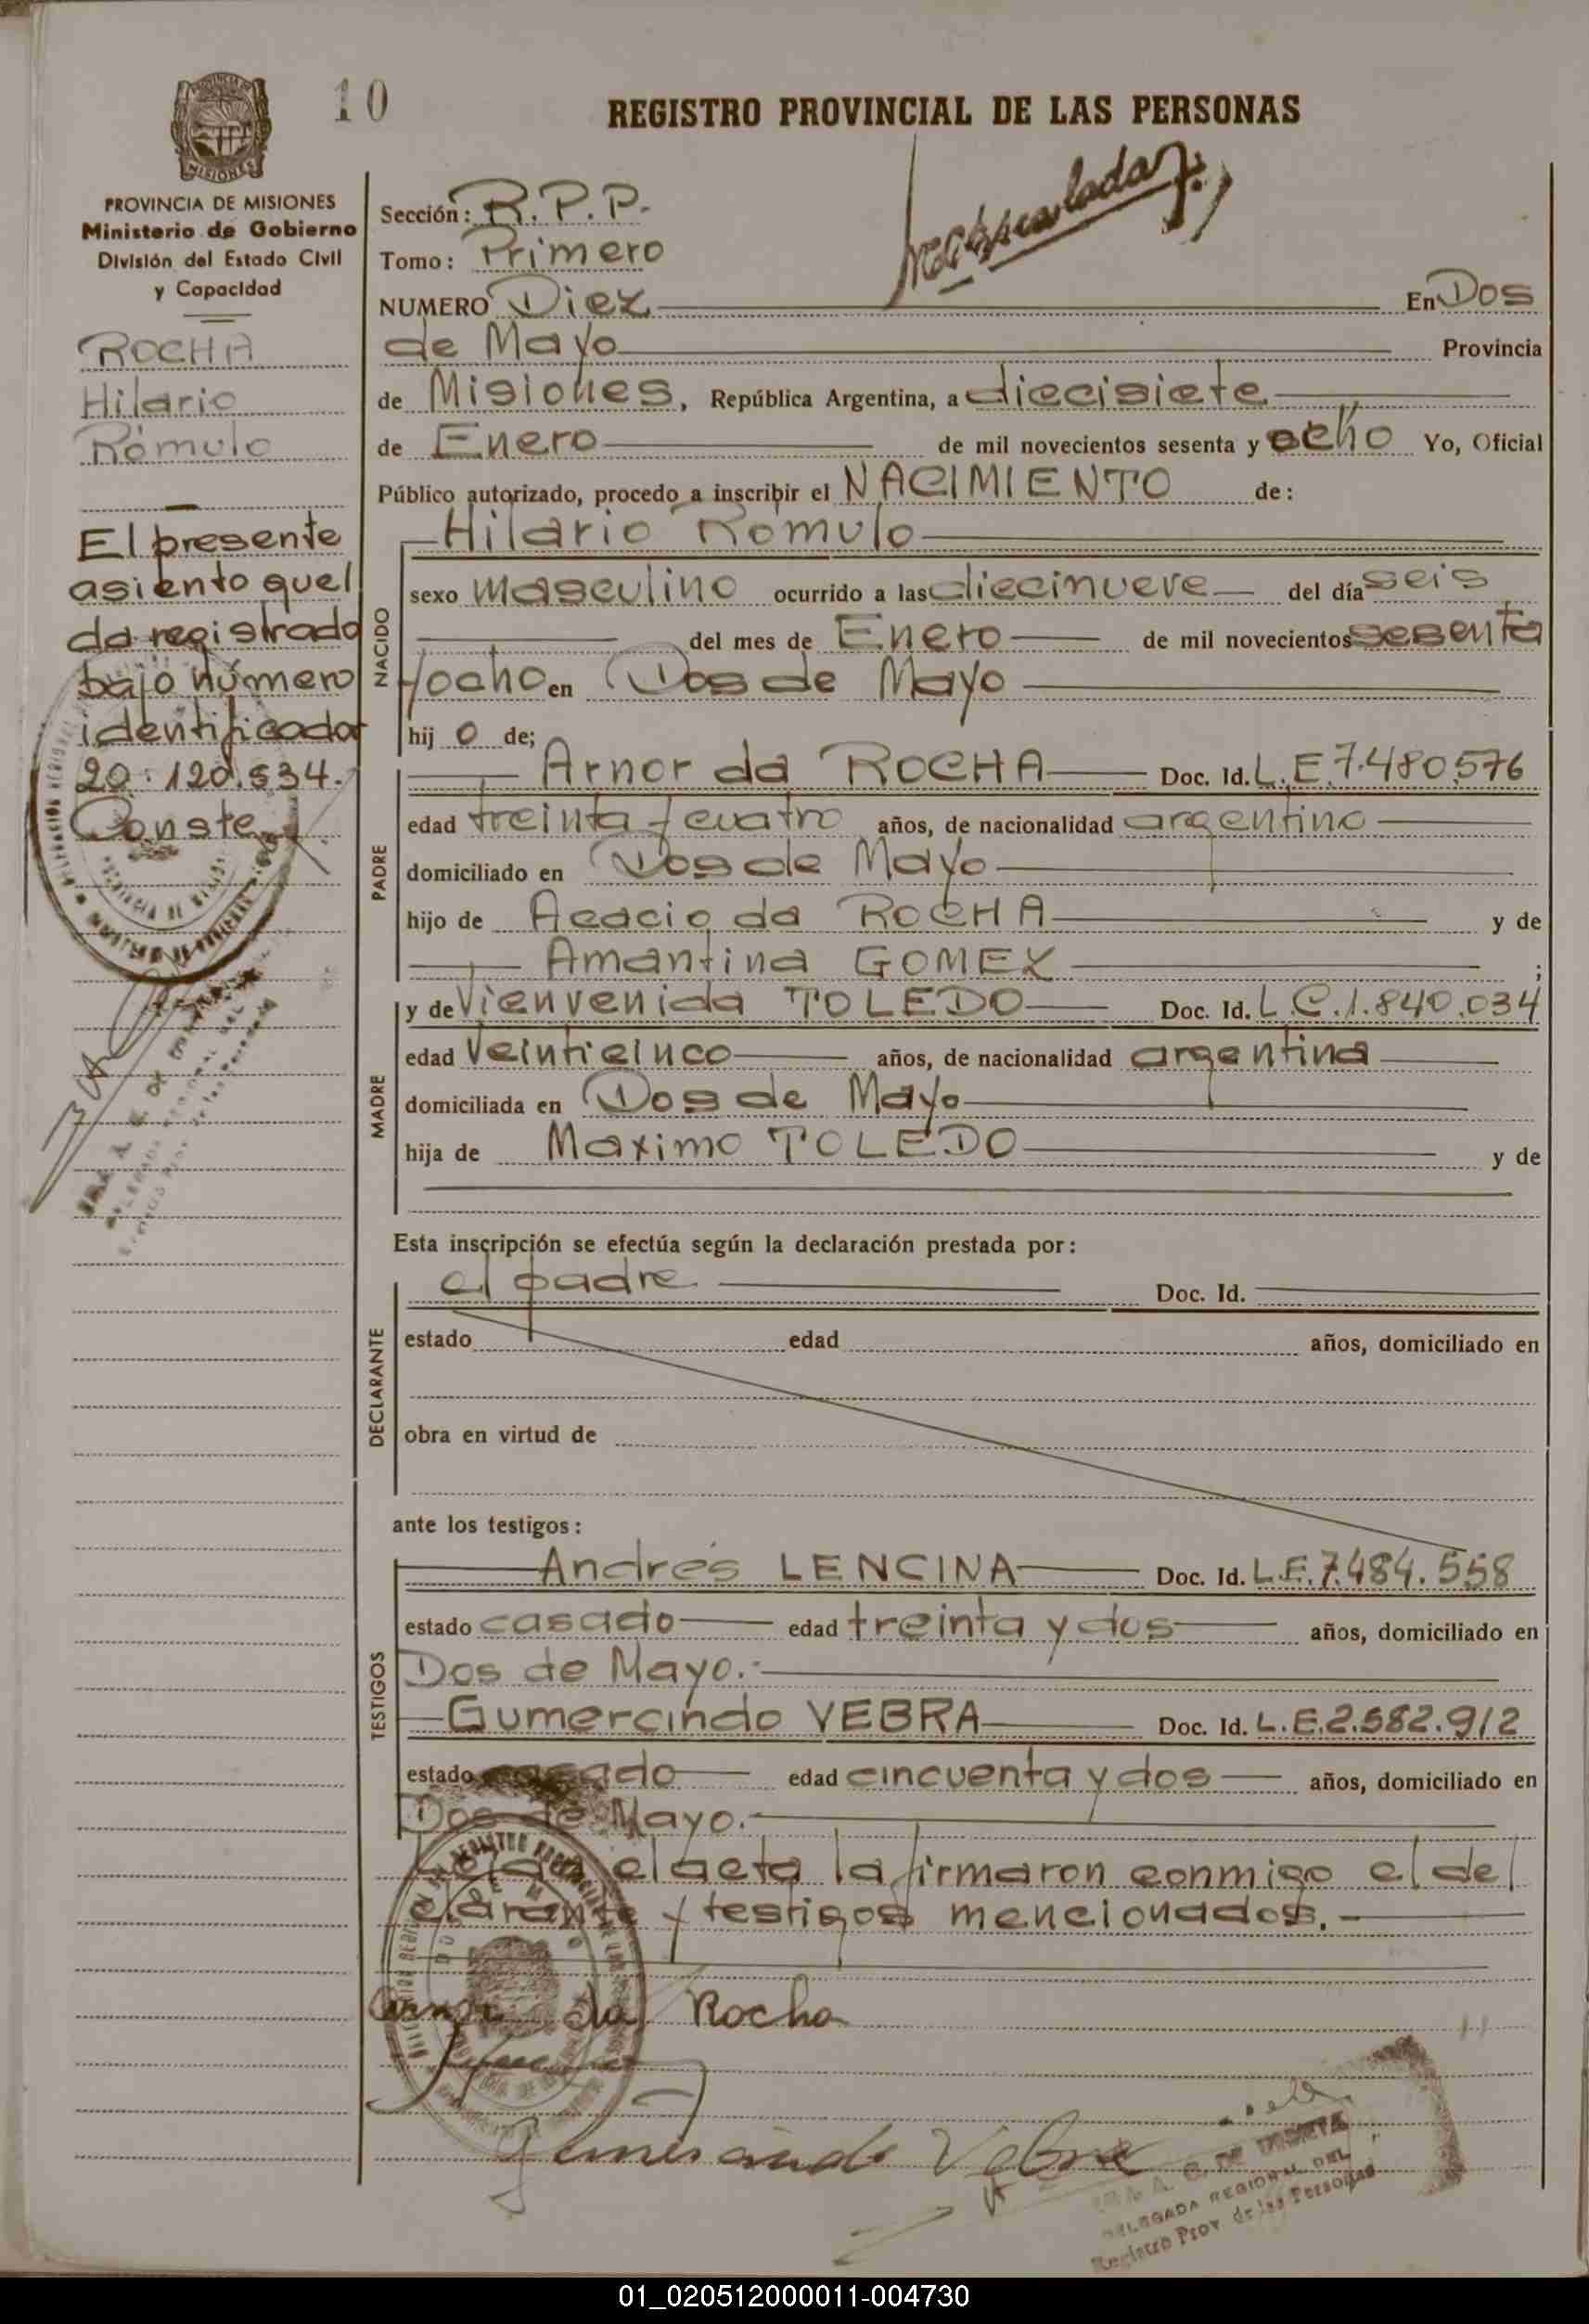 10
REGISTRO PROVINCIAL DE LAS PERSONAS
PROVINCIA DE MISIONES
Ministerio de Gobierno
División del Estado Civil
y Capacidad
ROCHA
Hilario
Rómulo
El presente
asiento quel
da registrado
bajo número
identificador
20.120.534.
Conste
Sección: R.P.P.
Tomo: Primero
NUMERO Diez En Dos
de Mayo Provincia
de Misiones, República Argentina, a diecisiete
de Enero de mil novecientos sesenta y ocho Yo, Oficial
Público autorizado, procedo a inscribir el NACIMIENTO de:
NACIDO
Hilario Romulo
sexo masculino ocurrido a las diecinueve del día seis
del mes de Enero de mil novecientos sesenta
y ocho en Dos de Mayo
hij o de;
PADRE
Arnor da ROCHA Doc. Id. L.E.7.480.576
edad treinta y cuatro años, de nacionalidad argentino
domiciliado en Dos de Mayo
hijo de Acacio da ROCHA y de
Amantina GOMEZ ;
MADRE
y de Vienvenida TOLEDO Doc. Id. L.C.1.840.034
edad Veinticinco años, de nacionalidad argentina
domiciliada en Dos de Mayo
hija de Maximo TOLEDO y de
Esta inscripción se efectúa según la declaración prestada por:
DECLARANTE
el padre Doc. Id.
estado edad años, domiciliado en
obra en virtud de
ante los testigos:
TESTIGOS
Andrés LENCINA Doc. Id. L.E.7.484.558
estado casado edad treinta y dos años, domiciliado en
Dos de Mayo.-
Gumercindo VEBRA Doc. Id. L.E.2.582.912
estado casado edad cincuenta y dos años, domiciliado en
Dos de Mayo.-
el acta la firmaron conmigo el de
clarante y testigos mencionados.-
Arnor da Rocha
Gumercindo Vebra
DELEGADA REGIONAL DEL
Registro Prov. de las Personas
01_020512000011-004730